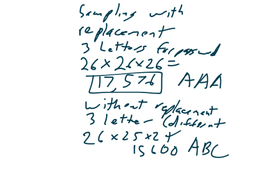 Sampling with
replacement
3 letters for passwd
26 x 26 x 26 =
17,576 AAA
without replacement
3 letter (different
26 x 25 x 24
15600 ABC